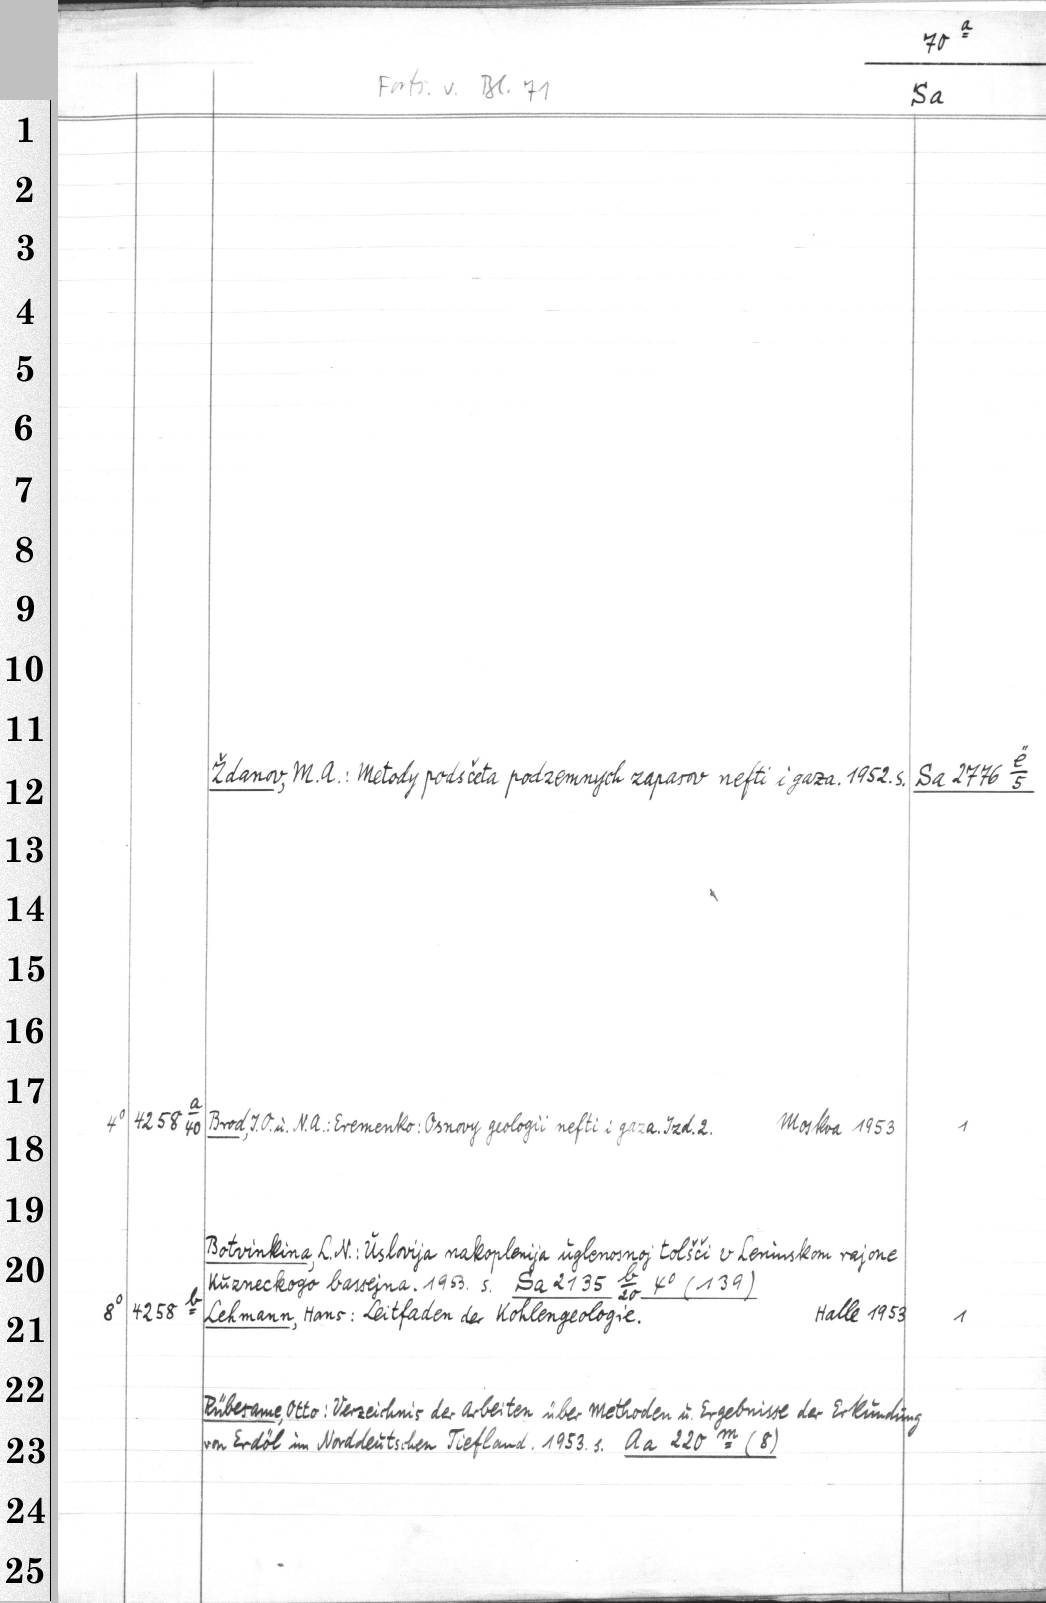 70 a
Forts. v. Bl. 71
Sa
1
2
3
4
5
6
7
8
9
10
11
Ždanov, M.A.: Metody podsčeta podzemnych zapasov nefti i gaza. 1952. s. Sa 2776 ë/5
12
13
14
15
16
17
4° 4258 a/40 Brod, I.O. u. N.A.: Eremenko: Osnovy geologii nefti i gaza. Izd. 2. Moskva 1953 1
18
19
Botvinkina, L.N.: Uslovija nakoplenija uglenosnoj tolšči v Leninskom rajone
20
Kuzneckogo bassejna. 1953. s. Sa 2135 b/20 4° (139)
8° 4258 b Lehmann, Hans: Leitfaden der Kohlengeologie. Halle 1953 1
21
22
Rübesame, Otto: Verzeichnis der Arbeiten über Methoden u. Ergebnisse der Erkundung
von Erdöl im Norddeutschen Tiefland. 1953. s. Aa 220 m (8)
23
24
25